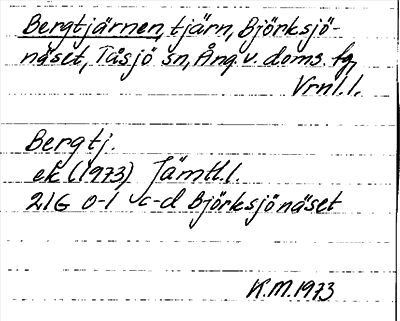 Bergtjärnen, tjärn, Björksjö-
näset, Tåsjö sn, Ång. v. doms. fg,
Vrnl. l.
Bergtj.
ek (1973) Jämtl. l.
21G 0-1 c-d Björksjönäset
K.M. 1973